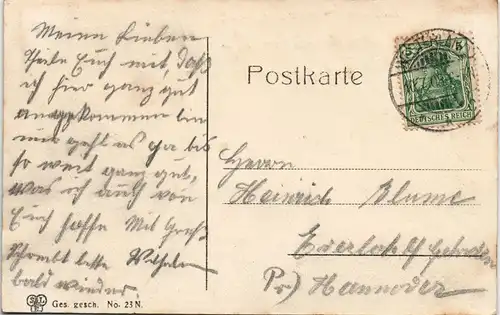 Meinen Lieben
Theile Euch mit, daß
ich hier ganz gut
angekommen bin
mir geht es ja bis
so weit ganz gut,
was ich auch von
Euch hoffe Mit Gruß
Schreibt bitte Wilhelm
bald wieder
Postkarte
DEUTSCHES REICH
5 5
Herrn
Heinrich Blume
Pr) Hannover
Ges. gesch. No. 23 N.